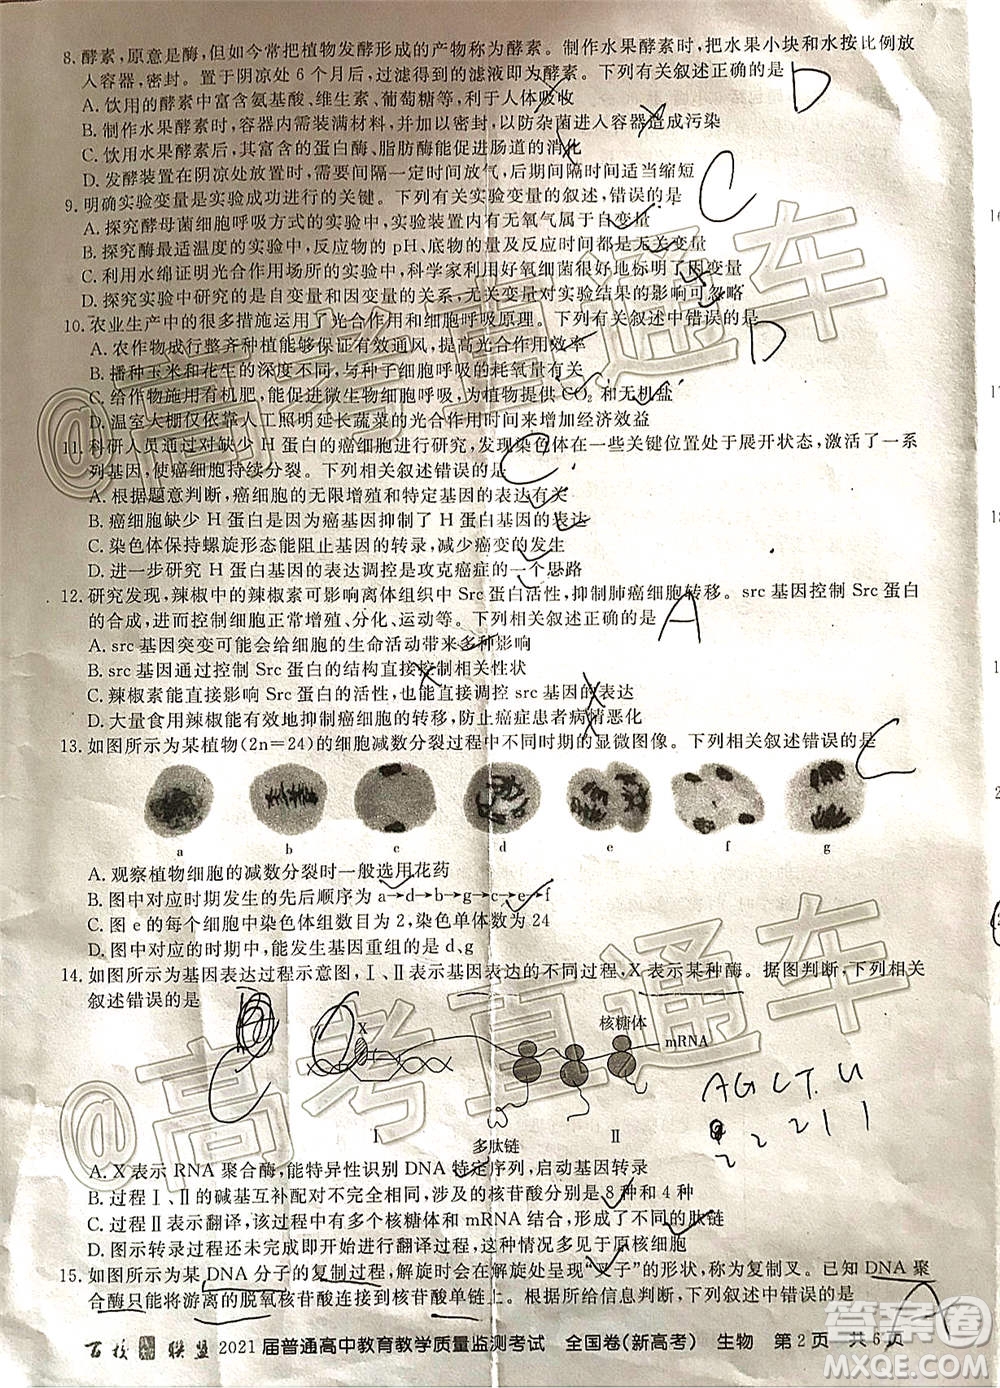 8. 酵素，原意是酶，但如今常把植物发酵形成的产物称为酵素。制作水果酵素时，把水果小块和水按比例放
入容器，密封。置于阴凉处 6 个月后，过滤得到的滤液即为酵素。下列有关叙述正确的是 D
A. 饮用的酵素中富含氨基酸、维生素、葡萄糖等，利于人体吸收
B. 制作水果酵素时，容器内需装满材料，并加以密封，以防杂菌进入容器造成污染
C. 饮用水果酵素后，其富含的蛋白酶、脂肪酶能促进肠道的消化
D. 发酵装置在阴凉处放置时，需要间隔一定时间放气，后期间隔时间适当缩短
9. 明确实验变量是实验成功进行的关键。下列有关实验变量的叙述，错误的是 C
A. 探究酵母菌细胞呼吸方式的实验中，实验装置内有无氧气属于自变量
B. 探究酶最适温度的实验中，反应物的 pH、底物的量等都是无关变量
C. 利用水绵证明光合作用场所的实验中，科学家利用好氧细菌很好地标明了因变量
D. 探究实验中研究的是自变量和因变量的关系，无关变量对实验结果的影响可忽略
10. 农业生产中的很多措施运用了光合作用和细胞呼吸原理。下列有关叙述中错误的是 D
A. 农作物成行整齐种植能够保证有效通风，提高光合作用
B. 播种玉米和花生的深度不同，与种子细胞呼吸的耗氧量有关
C. 给作物施用有机肥，能促进微生物细胞呼吸，为植物提供 CO₂ 和无机盐
D. 温室大棚仅依靠人工照明延长蔬菜的光合作用时间来增加经济效益
11. 科研人员通过对缺少 H 蛋白的癌细胞进行研究，发现染色体在一些关键位置处于展开状态，激活了一系
列基因，使癌细胞持续分裂。下列相关叙述错误的是
A. 根据题意判断，癌细胞的无限增殖和特定基因的表达有关
B. 癌细胞缺少 H 蛋白是因为癌基因抑制了 H 蛋白基因的表达
C. 染色体保持螺旋形态，能阻止基因的转录，减少癌变的发生
D. 进一步研究 H 蛋白的基因表达调控是攻克癌症的一个思路
12. 研究发现，辣椒中的辣椒素可影响离体组织中 Src 蛋白活性，抑制肺癌细胞转移。src 基因控制 Src 蛋白
的合成，进而控制细胞的正常增殖、分化、运动等。下列相关叙述正确的是 A
A. src 基因突变可能会给细胞的生命活动带来多种影响
B. src 基因通过控制 Src 蛋白的结构直接控制相关性状
C. 辣椒素能直接影响 Src 蛋白的活性，也能直接调控 src 基因的表达
D. 大量食用辣椒能有效地抑制癌细胞的转移，防止癌症患者病情恶化
13. 如图所示为某植物(2n=24)的细胞减数分裂过程中不同时期的显微图像。下列相关叙述错误的是 C
a b c d e f g
A. 观察植物细胞的减数分裂时一般选用花药
B. 图中对应时期发生的先后顺序为 a→d→b→g→c→e→f
C. 图 e 的每个细胞中染色体组数目为 2，染色单体数为 24
D. 图中对应的时期中，能发生基因重组的是 d、g
14. 如图所示为基因表达过程示意图，Ⅰ、Ⅱ表示基因表达的不同过程，X 表示某种酶。据图判断，下列相关
叙述错误的是
C
X
核糖体
mRNA
Ⅰ 多肽链 Ⅱ
A G C T U
2 2 2 1 1
A. X 表示 RNA 聚合酶，能特异性识别 DNA 特定序列，启动基因转录
B. 过程Ⅰ、Ⅱ的碱基互补配对不完全相同，涉及的核苷酸分别是 8 种和 4 种
C. 过程Ⅱ表示翻译，该过程中多个核糖体和 mRNA 结合，形成了不同的肽链
D. 图示转录过程还未完成即开始进行翻译过程，该细胞应为原核细胞
15. 如图所示为某 DNA 分子的复制过程，解旋时会在解旋处呈现“叉子”的形状，称为复制叉。已知 DNA 聚
合酶只能将游离的脱氧核苷酸连接到核苷酸单链上。下列相关叙述错误的是 A
百校联盟 2021 届普通高中教育教学质量监测考试 全国卷(新高考) 生物 第 2 页 共 6 页
@高考直通车
@高考直通车
答案圈